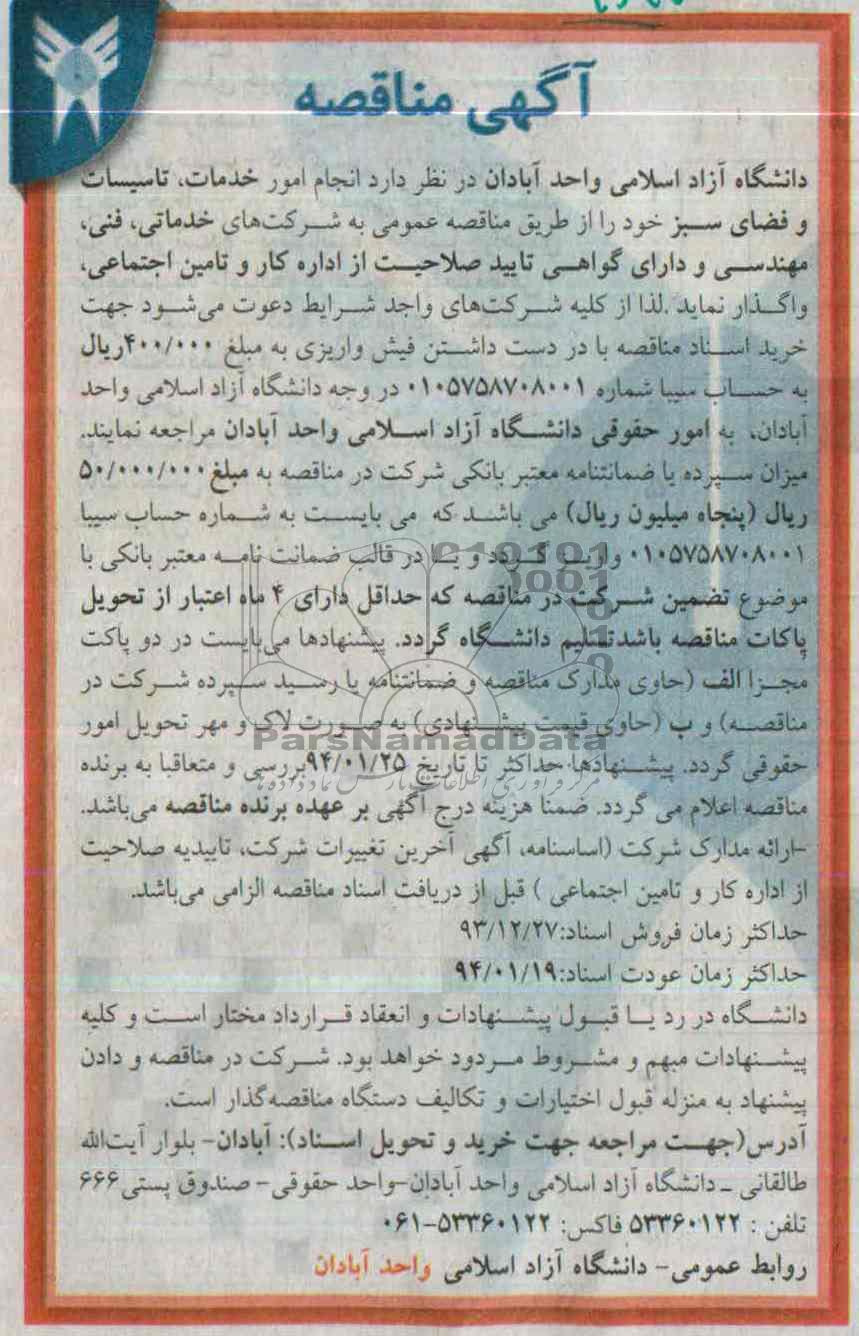 آگهی مناقصه
دانشگاه آزاد اسلامی واحد آبادان در نظر دارد انجام امور خدمات، تاسیسات
و فضای سبز خود را از طریق مناقصه عمومی به شرکت‌های خدماتی، فنی،
مهندسی و دارای گواهی تایید صلاحیت از اداره کار و تامین اجتماعی،
واگذار نماید .لذا از کلیه شرکت‌های واجد شرایط دعوت می‌شود جهت
خرید اسناد مناقصه با در دست داشتن فیش واریزی به مبلغ ۴۰۰/۰۰۰ریال
به حساب سیبا شماره ۰۱۰۵۷۵۸۷۰۸۰۰۱ در وجه دانشگاه آزاد اسلامی واحد
آبادان، به امور حقوقی دانشگاه آزاد اسلامی واحد آبادان مراجعه نمایند.
میزان سپرده یا ضمانتنامه معتبر بانکی شرکت در مناقصه به مبلغ ۵۰/۰۰۰/۰۰۰
ریال (پنجاه میلیون ریال) می باشند که می بایست به شماره حساب سیبا
۰۱۰۵۷۵۸۷۰۸۰۰۱ واریز گردد و یا در قالب ضمانت نامه معتبر بانکی با
موضوع تضمین شرکت در مناقصه که حداقل دارای ۴ ماه اعتبار از تحویل
پاکات مناقصه باشدتسلیم دانشگاه گردد. پیشنهادها می‌بایست در دو پاکت
مجزا الف (حاوی مدارک مناقصه و ضمانتنامه یا رسید سپرده شرکت در
مناقصه) و ب (حاوی قیمت پیشنهادی) به صورت لاک و مهر تحویل امور
ParsNamadData
حقوقی گردد. پیشنهادها حداکثر تا تاریخ ۹۴/۰۱/۲۵بررسی و متعاقبا به برنده
مرکز فرآوری اطلاعات پارس نماد داده ها
مناقصه اعلام می گردد. ضمنا هزینه درج آگهی بر عهده برنده مناقصه می‌باشد.
-ارائه مدارک شرکت (اساسنامه، آگهی آخرین تغییرات شرکت، تاییدیه صلاحیت
از اداره کار و تامین اجتماعی ) قبل از دریافت اسناد مناقصه الزامی می‌باشد.
حداکثر زمان فروش اسناد:۹۳/۱۲/۲۷
حداکثر زمان عودت اسناد:۹۴/۰۱/۱۹
دانشگاه در رد یا قبول پیشنهادات و انعقاد قرارداد مختار است و کلیه
پیشنهادات مبهم و مشروط مردود خواهد بود. شرکت در مناقصه و دادن
پیشنهاد به منزله قبول اختیارات و تکالیف دستگاه مناقصه‌گذار است.
آدرس(جهت مراجعه جهت خرید و تحویل اسناد): آبادان- بلوار آیت‌الله
طالقانی – دانشگاه آزاد اسلامی واحد آبادان-واحد حقوقی- صندوق پستی۶۶۶
تلفن : ۵۳۳۶۰۱۲۲ فاکس: ۵۳۳۶۰۱۲۲-۰۶۱
روابط عمومی- دانشگاه آزاد اسلامی واحد آبادان